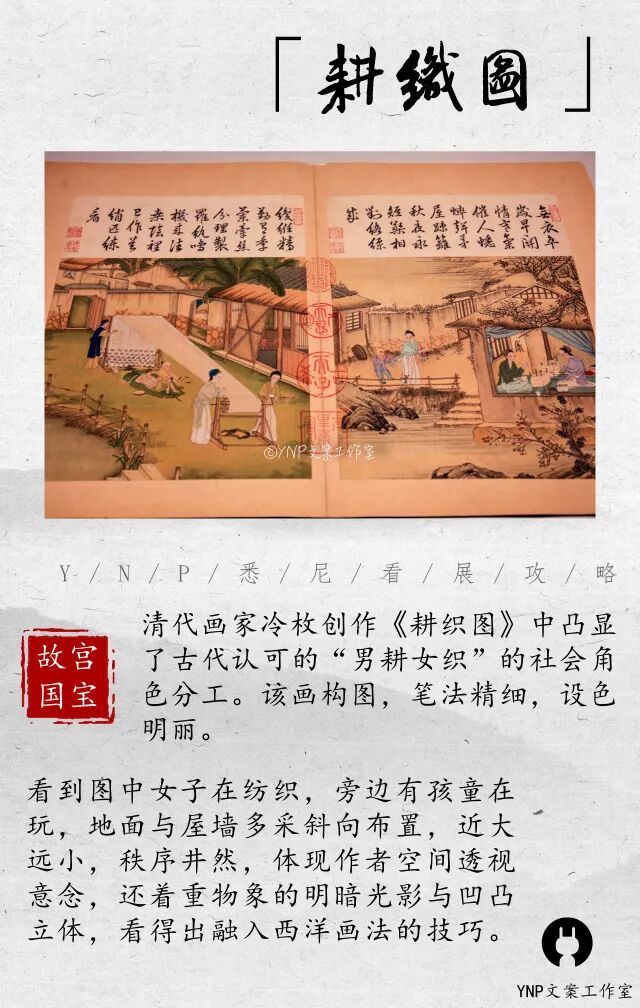 「耕織圖」
©YNP文案工作室
Y/N/P/悉/尼/看/展/攻/略
故宫
国宝
清代画家冷枚创作《耕织图》中凸显
了古代认可的“男耕女织”的社会角
色分工。该画构图，笔法精细，设色
明丽。
看到图中女子在纺织，旁边有孩童在
玩，地面与屋墙多采斜向布置，近大
远小，秩序井然，体现作者空间透视
意念，还着重物象的明暗光影与凹凸
立体，看得出融入西洋画法的技巧。
YNP文案工作室